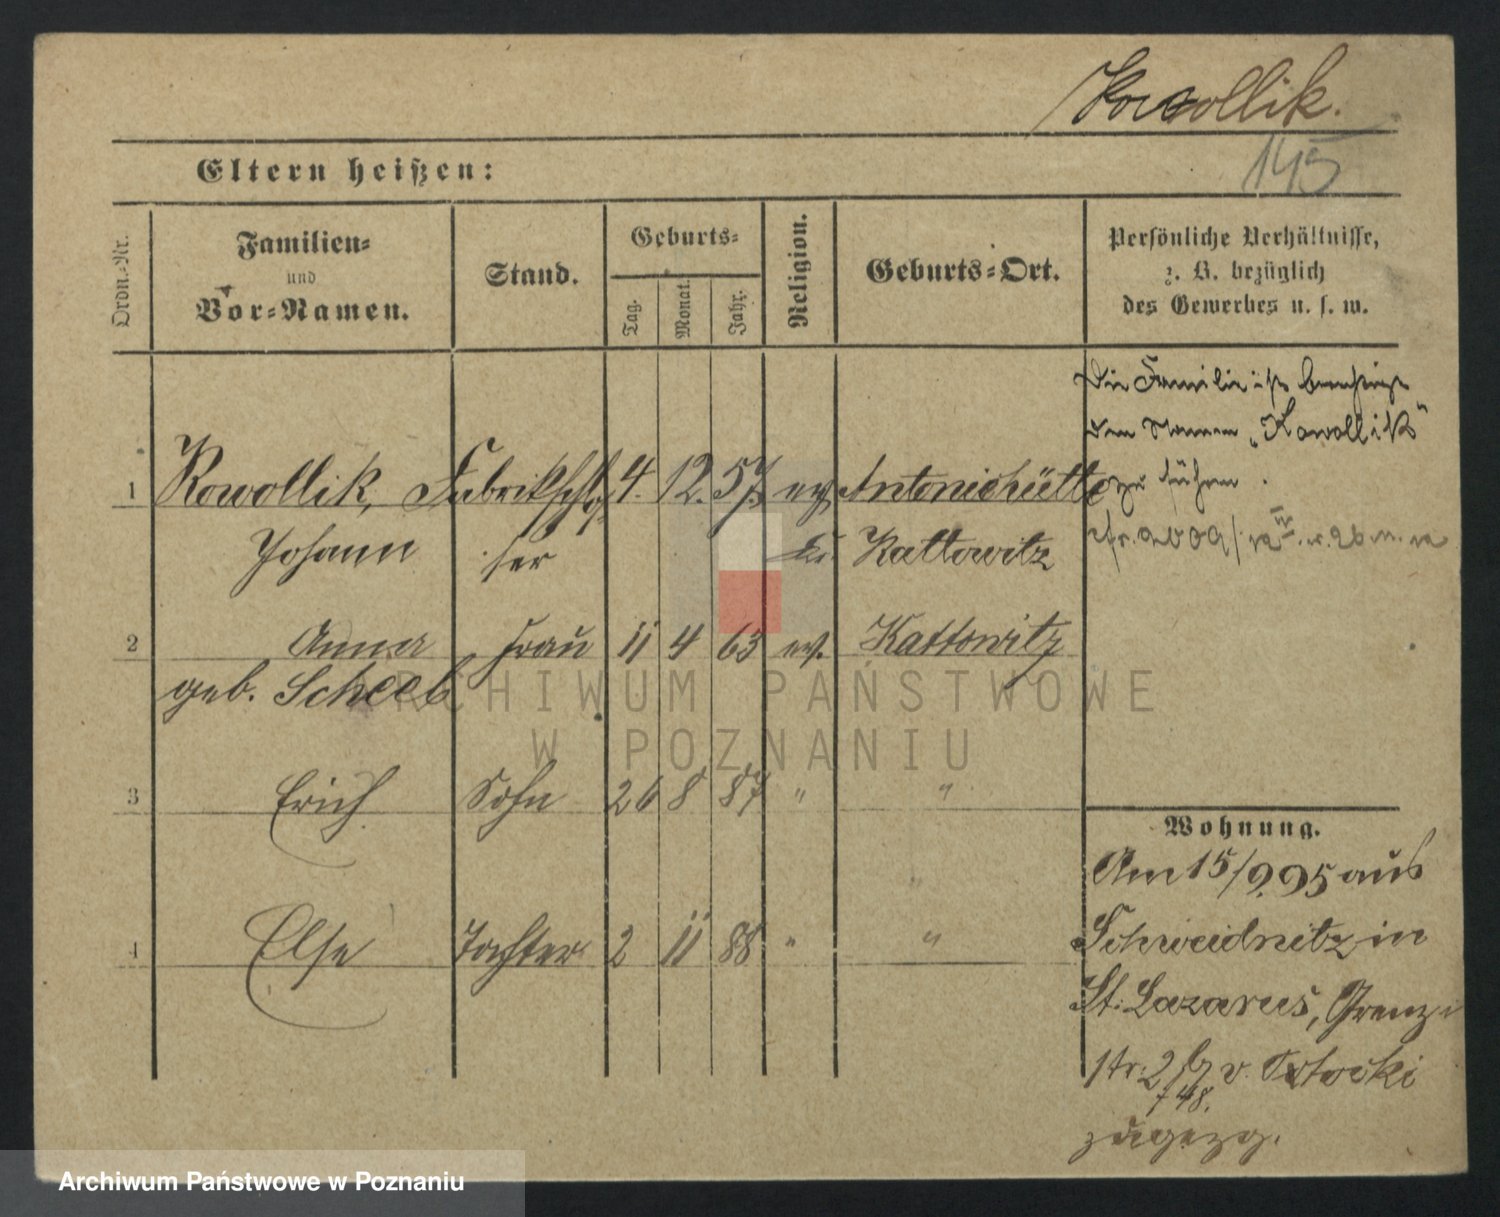 Kowollik.
145
Eltern heißen:
Ordn.-Nr.
Familien-
und
Vor-Namen.
Stand.
Geburts-
Tag.
Monat.
Jahr.
Religion.
Geburts-Ort.
Persönliche Verhältnisse,
z. B. bezüglich
des Gewerbes u. s. w.
Die Familie ist berechtigt
den Namen „Kowollik"
zu führen.
1 Kowollik, Fabrikschlos 4. 12. 57 ev. Antoniehütte
Johann ser Kr. Kattowitz
2 Anna Frau 11 4 63 ev. Kattowitz
geb. Scheeb
3 Erich Sohn 26 8 87 " "
4 Else Tochter 2 11 88 " "
Wohnung.
Am 15/9.95 aus
Schweidnitz in
St. Lazarus, Grenz-
str. 2 b. v.
748.
zugezg.
ARCHIWUM PAŃSTWOWE
W POZNANIU
Archiwum Państwowe w Poznaniu